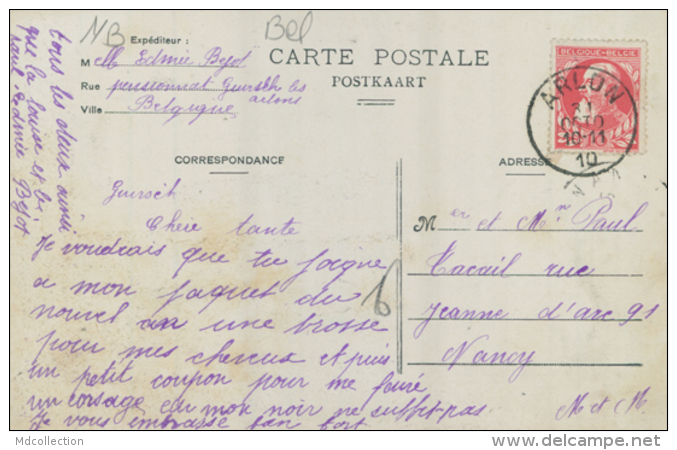 NB
Bel
Expéditeur :
Melle Edmée Bejot
Rue pensionnat Guirsch les
arlons
Ville Belgique
CARTE POSTALE
POSTKAART
BELGIQUE-BELGIE
ARLON
31
OCTO
10-11
10
CORRESPONDANCE
ADRESSE
Guirsch
Chère tante
Je voudrais que tu
a mon paquet du
nouvel an une brosse
pour mes cheveux et puis
un petit coupon pour me
un corsage mon noir ne suffit pas
Je vous embrasse bien fort
tous les deux ainsi
que la
Edmée Bejot
Mer et Mm Paul
Tacail rue
Jeanne d'arc 91
Nancy
M et M
6
Mdcollection
www.delcampe.net